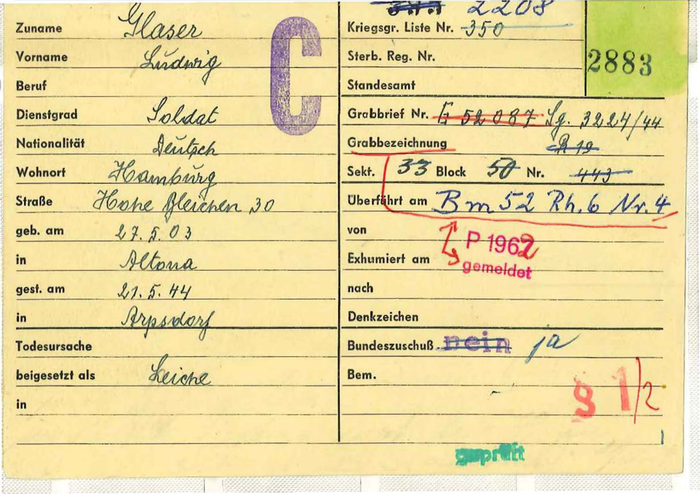 Zuname Glaser
Vorname Ludwig
Beruf
Dienstgrad Soldat
Nationalität Deutsch
Wohnort Hamburg
Straße Hohe Gleichen 30
geb. am 27.5.03
in Altona
gest. am 21.5.44
in Arpsdorf
Todesursache
beigesetzt als Leiche
in
C
2208
Kriegsgr. Liste Nr. 350
Sterb. Reg. Nr.
Standesamt
2883
Grabbrief Nr. G 52087 Sg. 3224/44
Grabbezeichnung R 19
Sekt. 33 Block 50 Nr. 443
Überführt am Bm 52 Rh. 6 Nr. 4
von
P 1962
Exhumiert am gemeldet
nach
Denkzeichen
Bundeszuschuß nein ja
Bem.
§ 1/2
geprüft